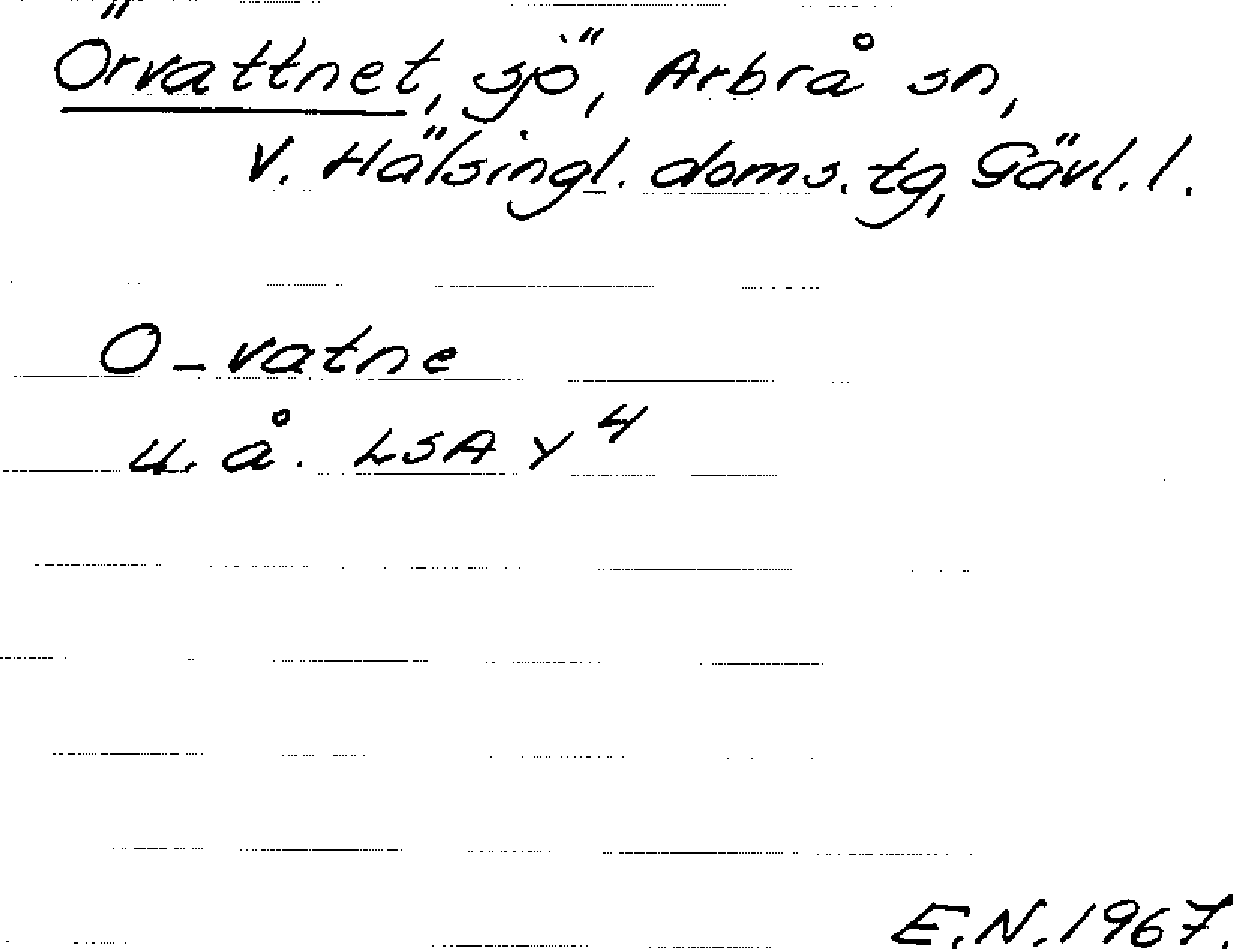 Örvattnet, sjö, Arbrå sn,
V. Hälsingl. doms. tg, Gävl. l.
O-vatne
u. å. LSA Y 4
E.N. 1967.